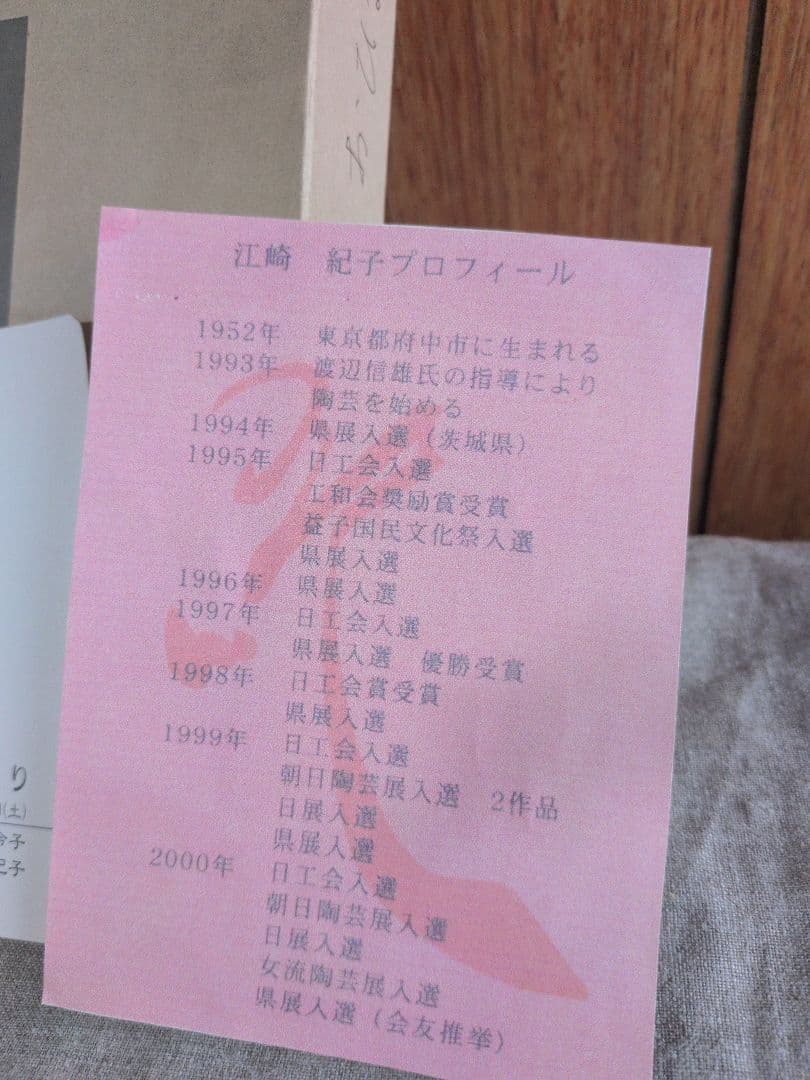 江崎　紀子プロフィール
1952年　東京都府中市に生まれる
1993年　渡辺信雄氏の指導により
陶芸を始める
1994年　県展入選（茨城県）
1995年　日工会入選
工和会奨励賞受賞
益子国民文化祭入選
県展入選
1996年　県展入選
1997年　日工会入選
県展入選　優勝受賞
1998年　日工会賞受賞
県展入選
1999年　日工会入選
朝日陶芸展入選　2作品
日展入選
県展入選
2000年　日工会入選
朝日陶芸展入選
日展入選
女流陶芸展入選
県展入選（会友推挙）
り
(土)
子
子